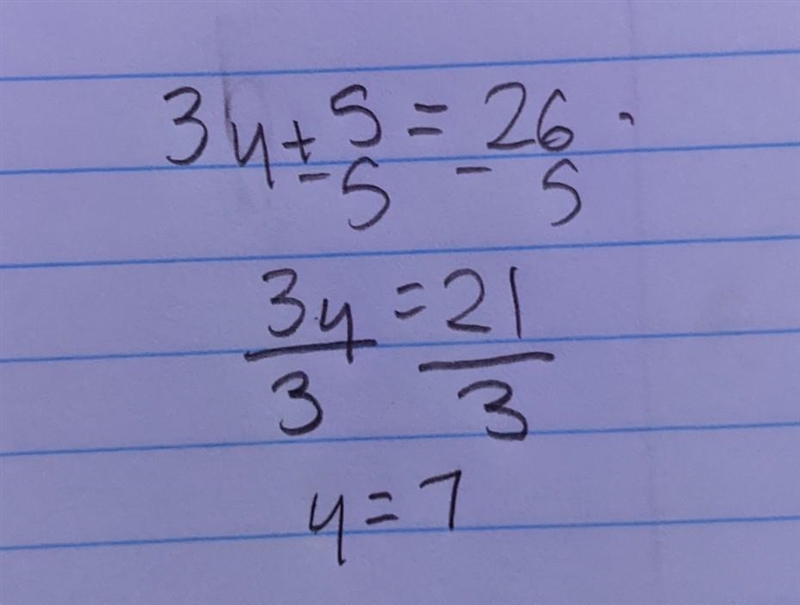 3y + 5 = 26
- 5 - 5
3y = 21
3 3
y = 7